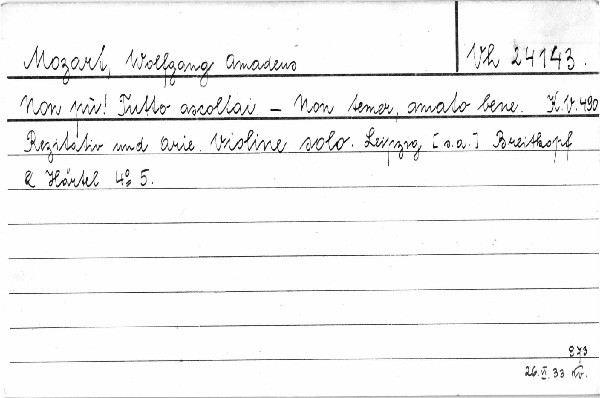 Mozart, Wolfgang Amadeus
Vh 24143.
Non più! Tutto ascoltai. – Non temer, amato bene. K.V. 490
Rezitativ und Arie. Violine solo. Leipzig [s.a.] Breitkopf
& Härtel 4° 5.
973
26.VI.33 Kv.